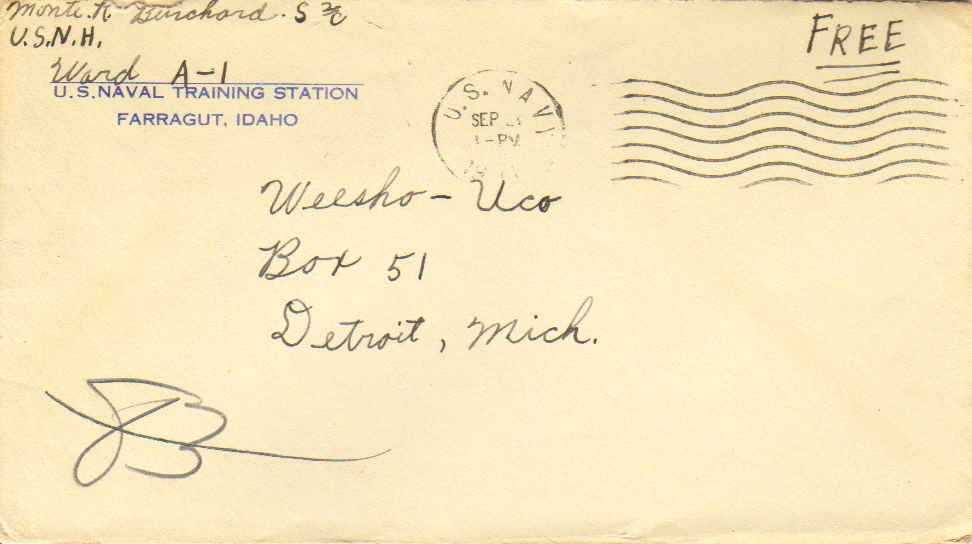 Monte. R. Burchard. S 2/c
U.S.N.H.
Ward A-1
U.S. NAVAL TRAINING STATION
FARRAGUT, IDAHO
U.S. NAVY
SEP
FREE
Weesho - Uco
Box 51
Detroit, Mich.